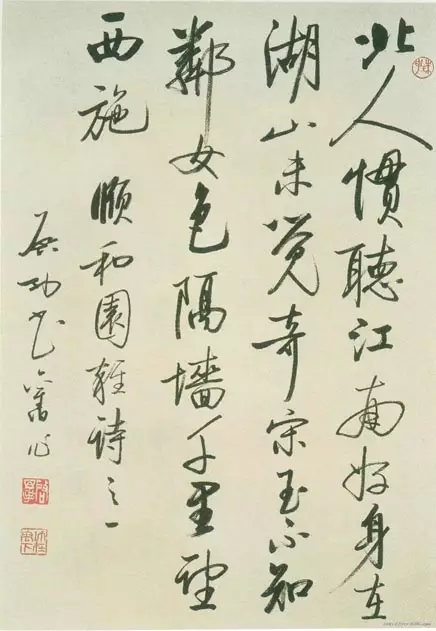 北人慣聽江南好身在
湖山未覺奇宋玉不知
鄰女色隔牆千里望
西施 頤和園雜詩之一
启功書舊作